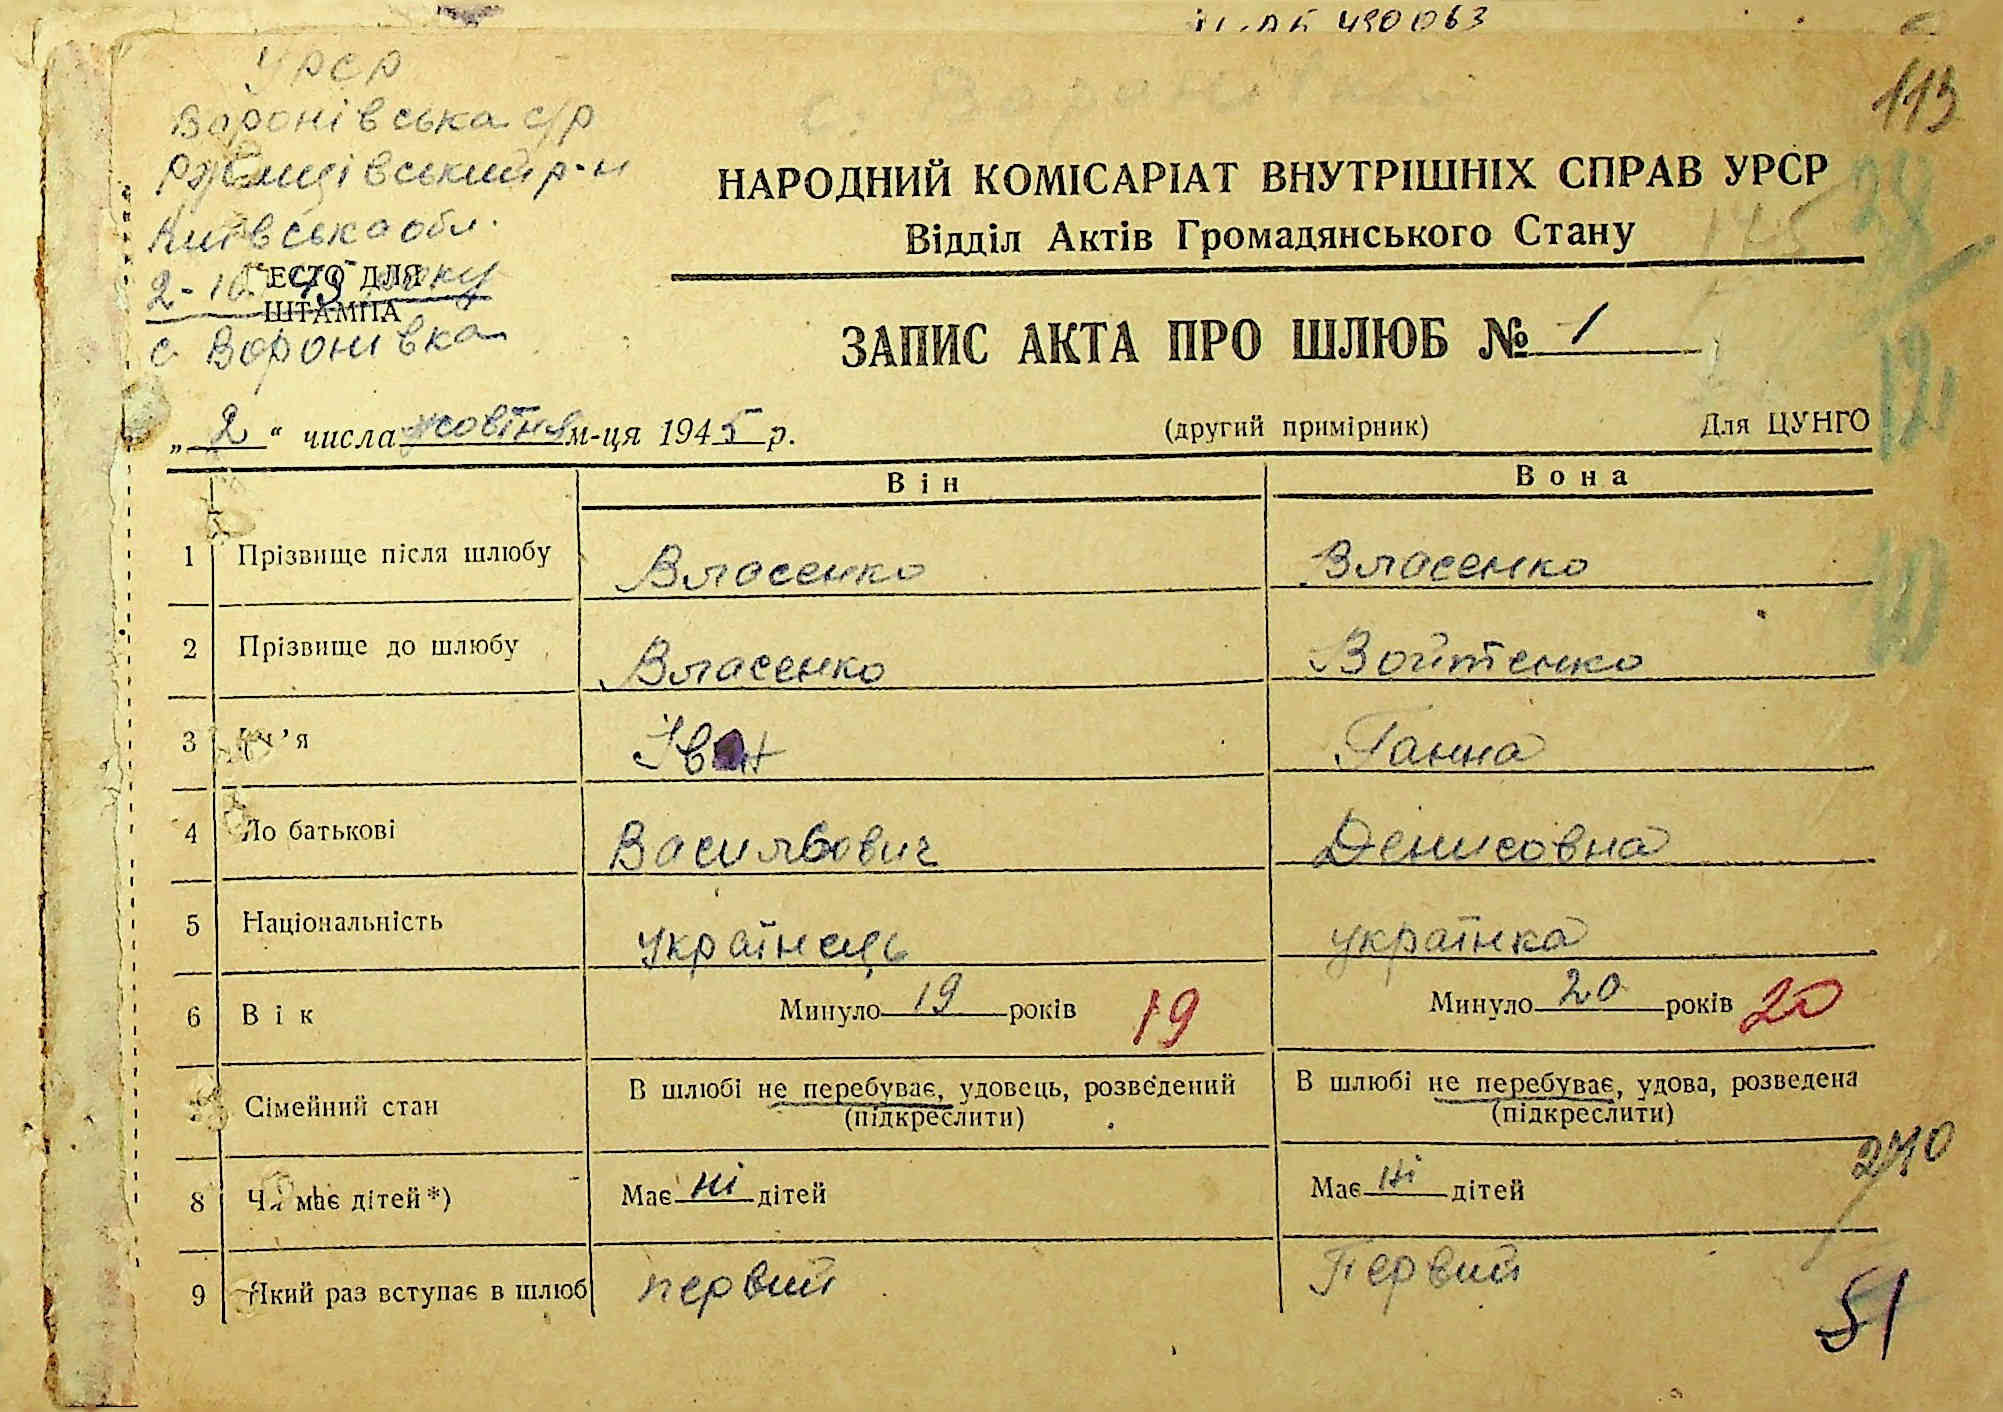 490063
УРСР
с. Воронівка
113
Воронівська с/р
Ржищівський р-н
Київська обл.
2-10 45 року
МЕСТО ДЛЯ
ШТАМПА
с Воронівка
НАРОДНИЙ КОМІСАРІАТ ВНУТРІШНІХ СПРАВ УРСР
Відділ Актів Громадянського Стану
145
28
ЗАПИС АКТА ПРО ШЛЮБ № 1
12
„ 2 “ числа жовтня м-ця 1945 р.
(другий примірник)
Для ЦУНГО
Він
Вона
1 Прізвище після шлюбу Власенко Власенко
2 Прізвище до шлюбу Власенко Войтенко
3 Ім’я Іван Ганна
4 По батькові Васильович Денисовна
5 Національність українець українка
6 Вік Минуло 19 років 19 Минуло 20 років 20
Сімейний стан В шлюбі не перебуває, удовець, розведений В шлюбі не перебуває, удова, розведена
(підкреслити) (підкреслити)
270
8 Чи має дітей*) Має ні дітей Має ні дітей
9 Який раз вступає в шлюб первий Первий
51